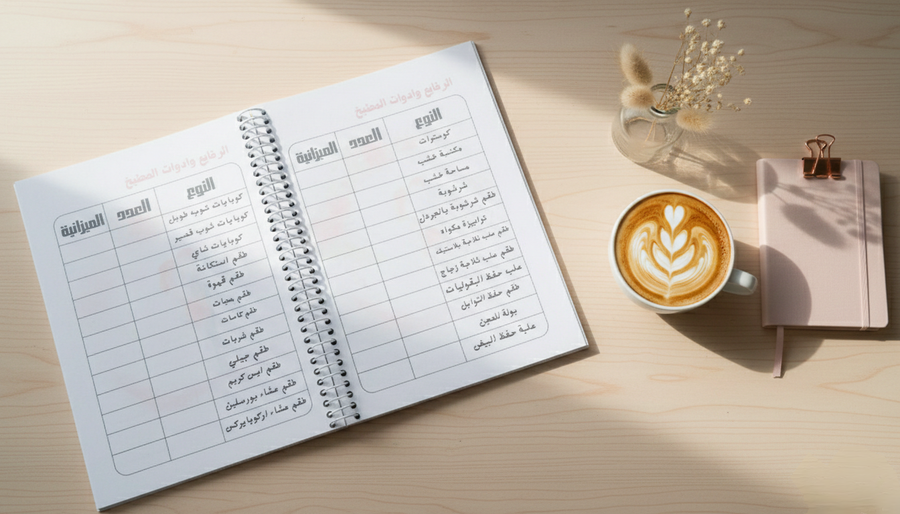 الرفايع وادوات المطبخ
النوع العدد الميزانية
كوسترات
مكنسة خشب
مساحة خشب
شرشوبة
طقم شرشوبة بالجردل
ترابيزة مكواه
طقم علب تلاجة بلاستيك
طقم علب تلاجة زجاج
علب حفظ البقوليات
طقم حفظ التوابل
بولة للعجن
علبة حفظ البيض
الرفايع وادوات المطبخ
النوع العدد الميزانية
كوبايات شوب طويل
كوبايات شوب قصير
كوبايات شاي
طقم استكانة
طقم قهوة
طقم مجات
طقم كاسات
طقم شربات
طقم جيلي
طقم ايس كريم
طقم عشاء بورسلين
طقم عشاء اركوبايركس